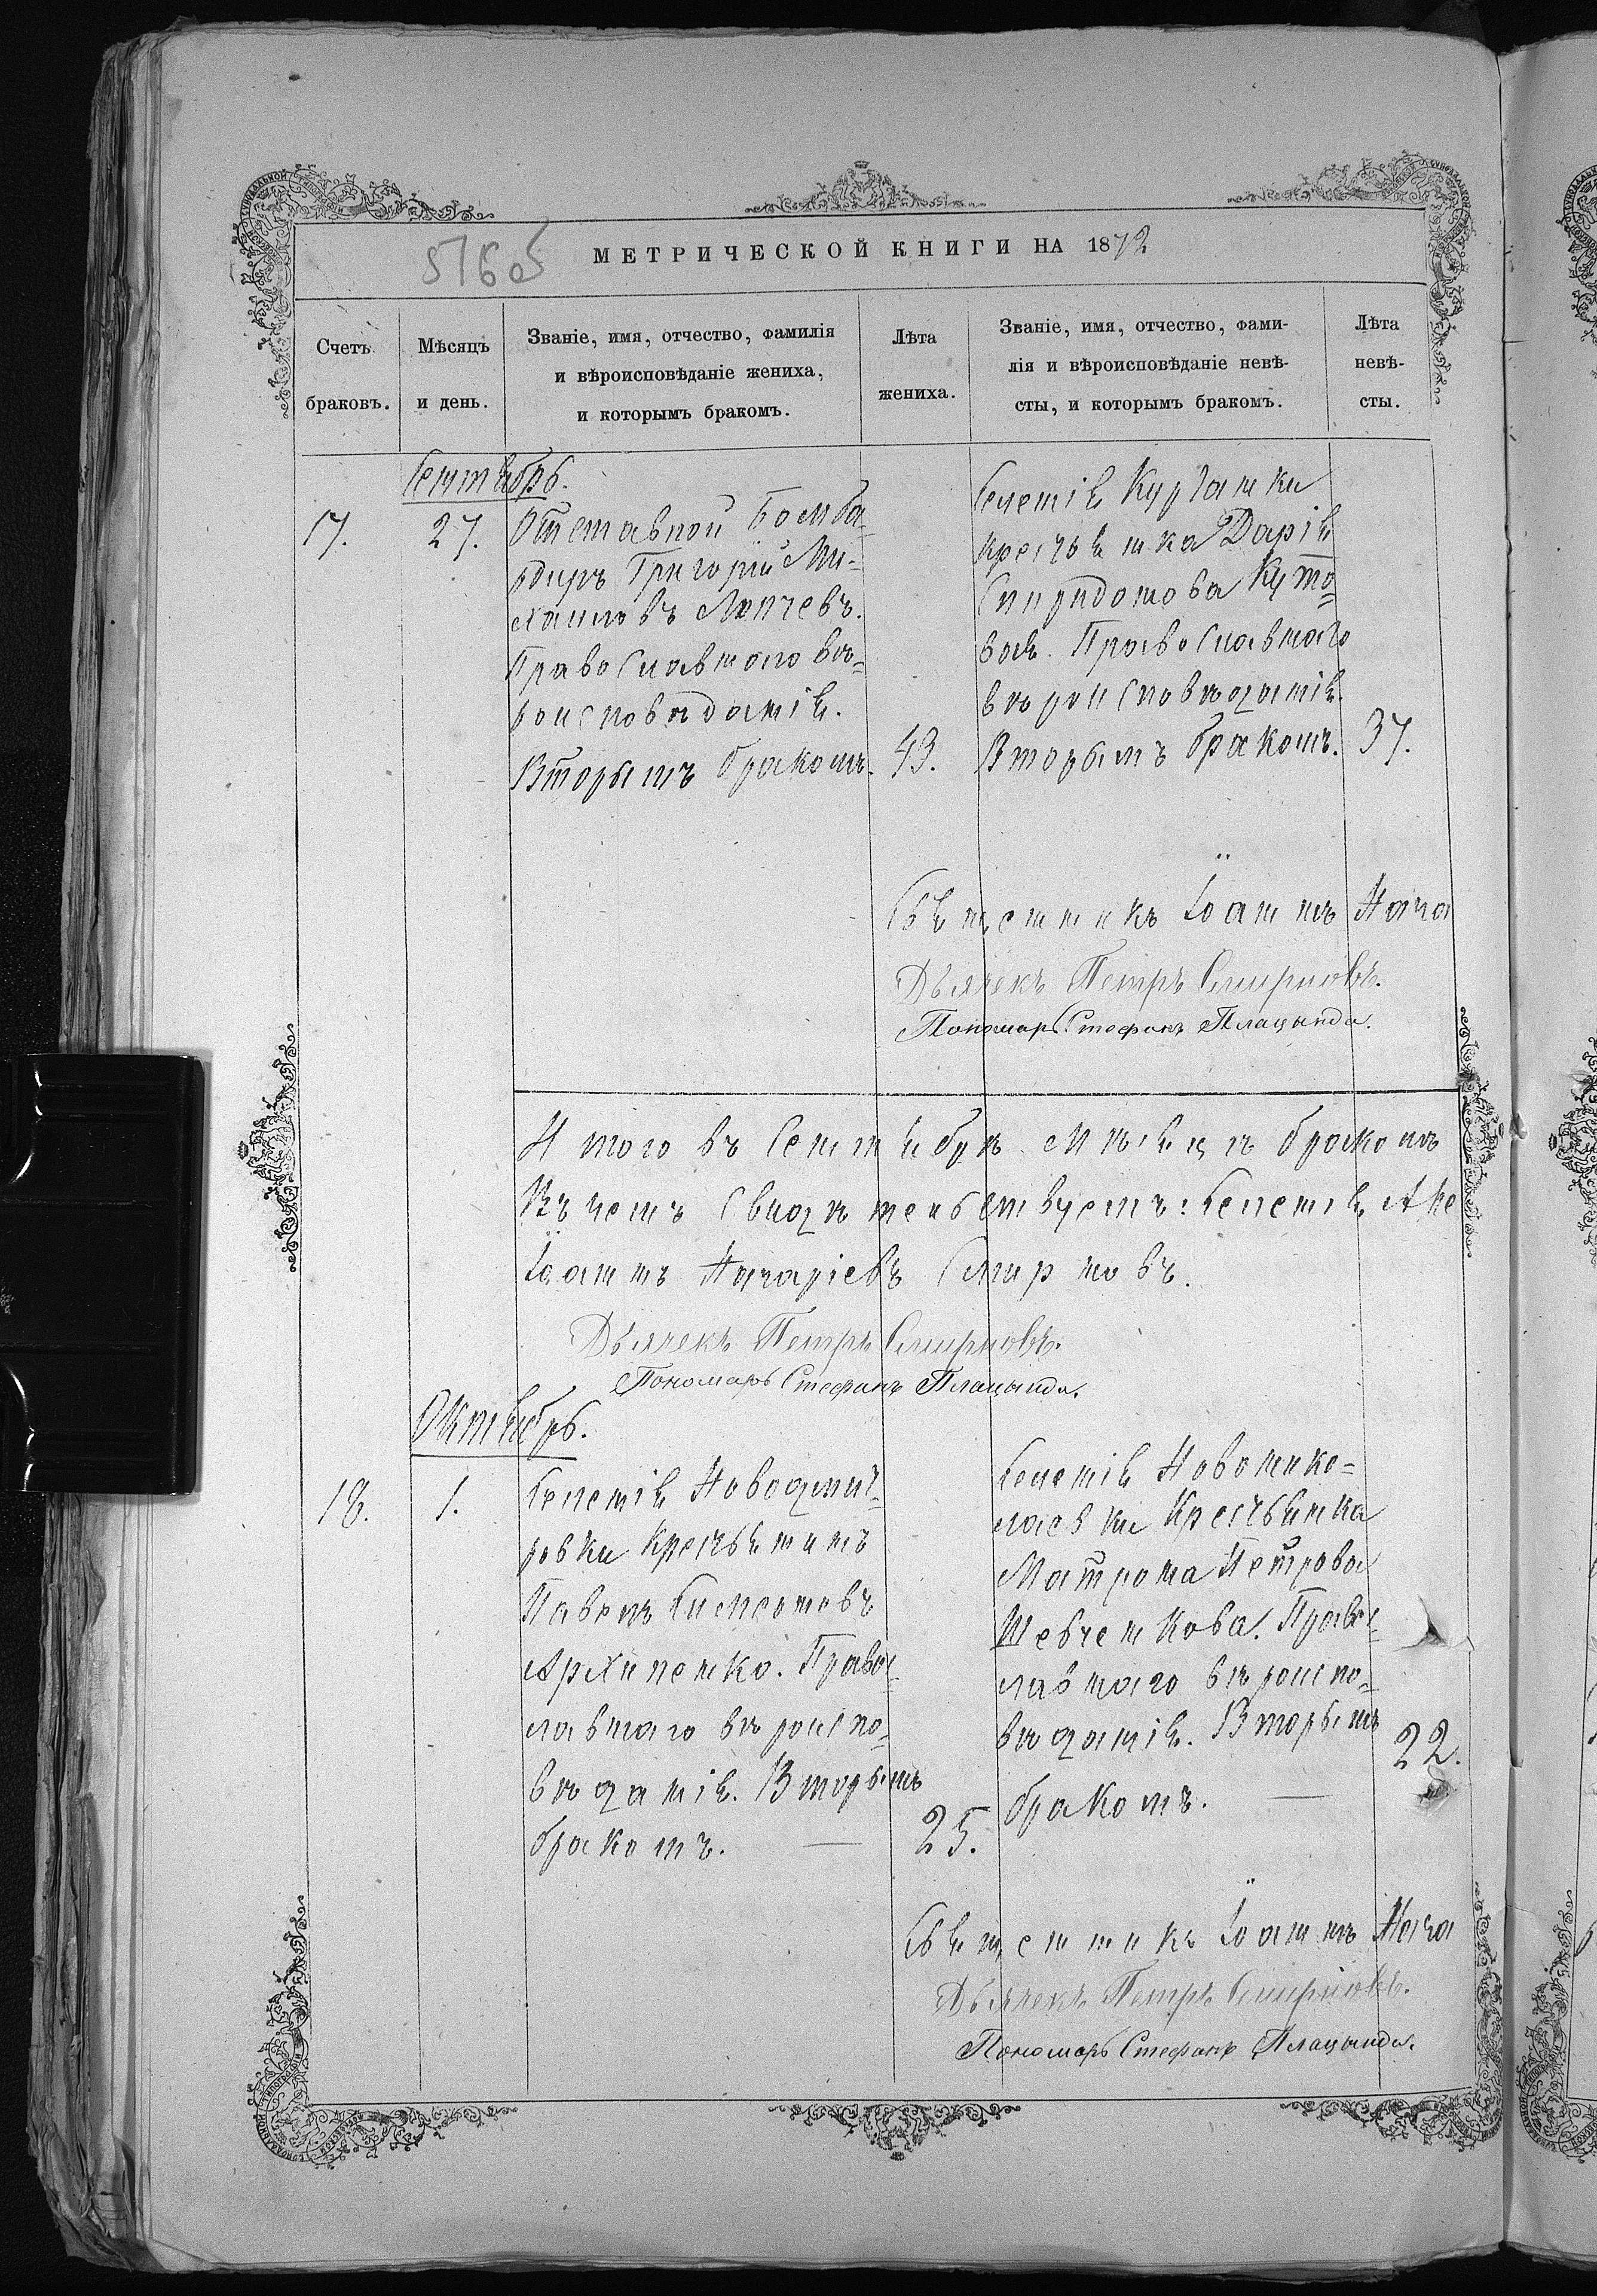 576об
МЕТРИЧЕСКОЙ КНИГИ НА 1872
Счетъ браковъ.
Мѣсяцъ и день.
Званіе, имя, отчество, фамилія
и вѣроисповѣданіе жениха,
и которымъ бракомъ.
Лѣта жениха.
Званіе, имя, отчество, фами-
лія и вѣроисповѣданіе невѣ-
сты, и которымъ бракомъ.
Лѣта невѣ-
сты.
Сентябрь.
17. 27.
Отставной Бомба-
рдиръ Григорій Ми-
хаиловъ Лопчевъ.
Православнаго вѣ-
роисповѣданія.
Вторымъ бракомъ. 43.
Селенія Кургански
крестьянка Дарія
Спиридонова Куто-
вая. Православнаго
вѣроисповѣданія.
Вторымъ бракомъ. 37.
Священникъ Іоаннъ Наза
Дьячекъ Петръ Смирновъ.
Пономарь Стефанъ Плацында.
Итого въ Сентябрѣ Мѣсяцѣ бракомъ
Въ чемъ Свидѣтельствуетъ: Селенія Але
Іоаннъ Назаріевъ Смирновъ.
Дьячекъ Петръ Смирновъ.
Пономарь Стефанъ Плацында.
Октябрь.
18. 1.
Селенія Новодмит-
ровки крестьянинъ
Павелъ Симеоновъ
Архипенко. Правос-
лавнаго вѣроиспо-
вѣданія. Вторымъ
бракомъ. — 25.
Селенія Новонико-
лаевки Крестьянка
Матрона Петрова
Шевченкова. Правос-
лавнаго вѣроиспо-
вѣданія. Вторымъ
бракомъ. — 22.
Священникъ Іоаннъ Наза
Дьячекъ Петръ Смирновъ.
Пономарь Стефанъ Плацында.